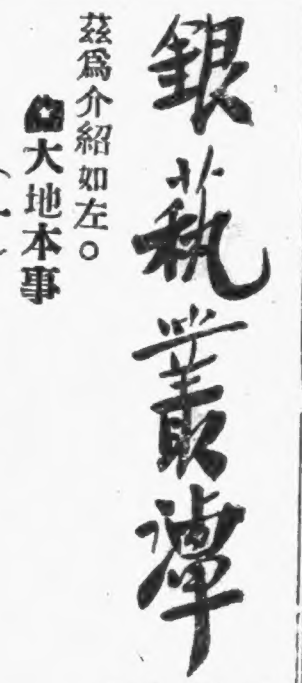 銀藝叢譚
茲爲介紹如左。
大地本事